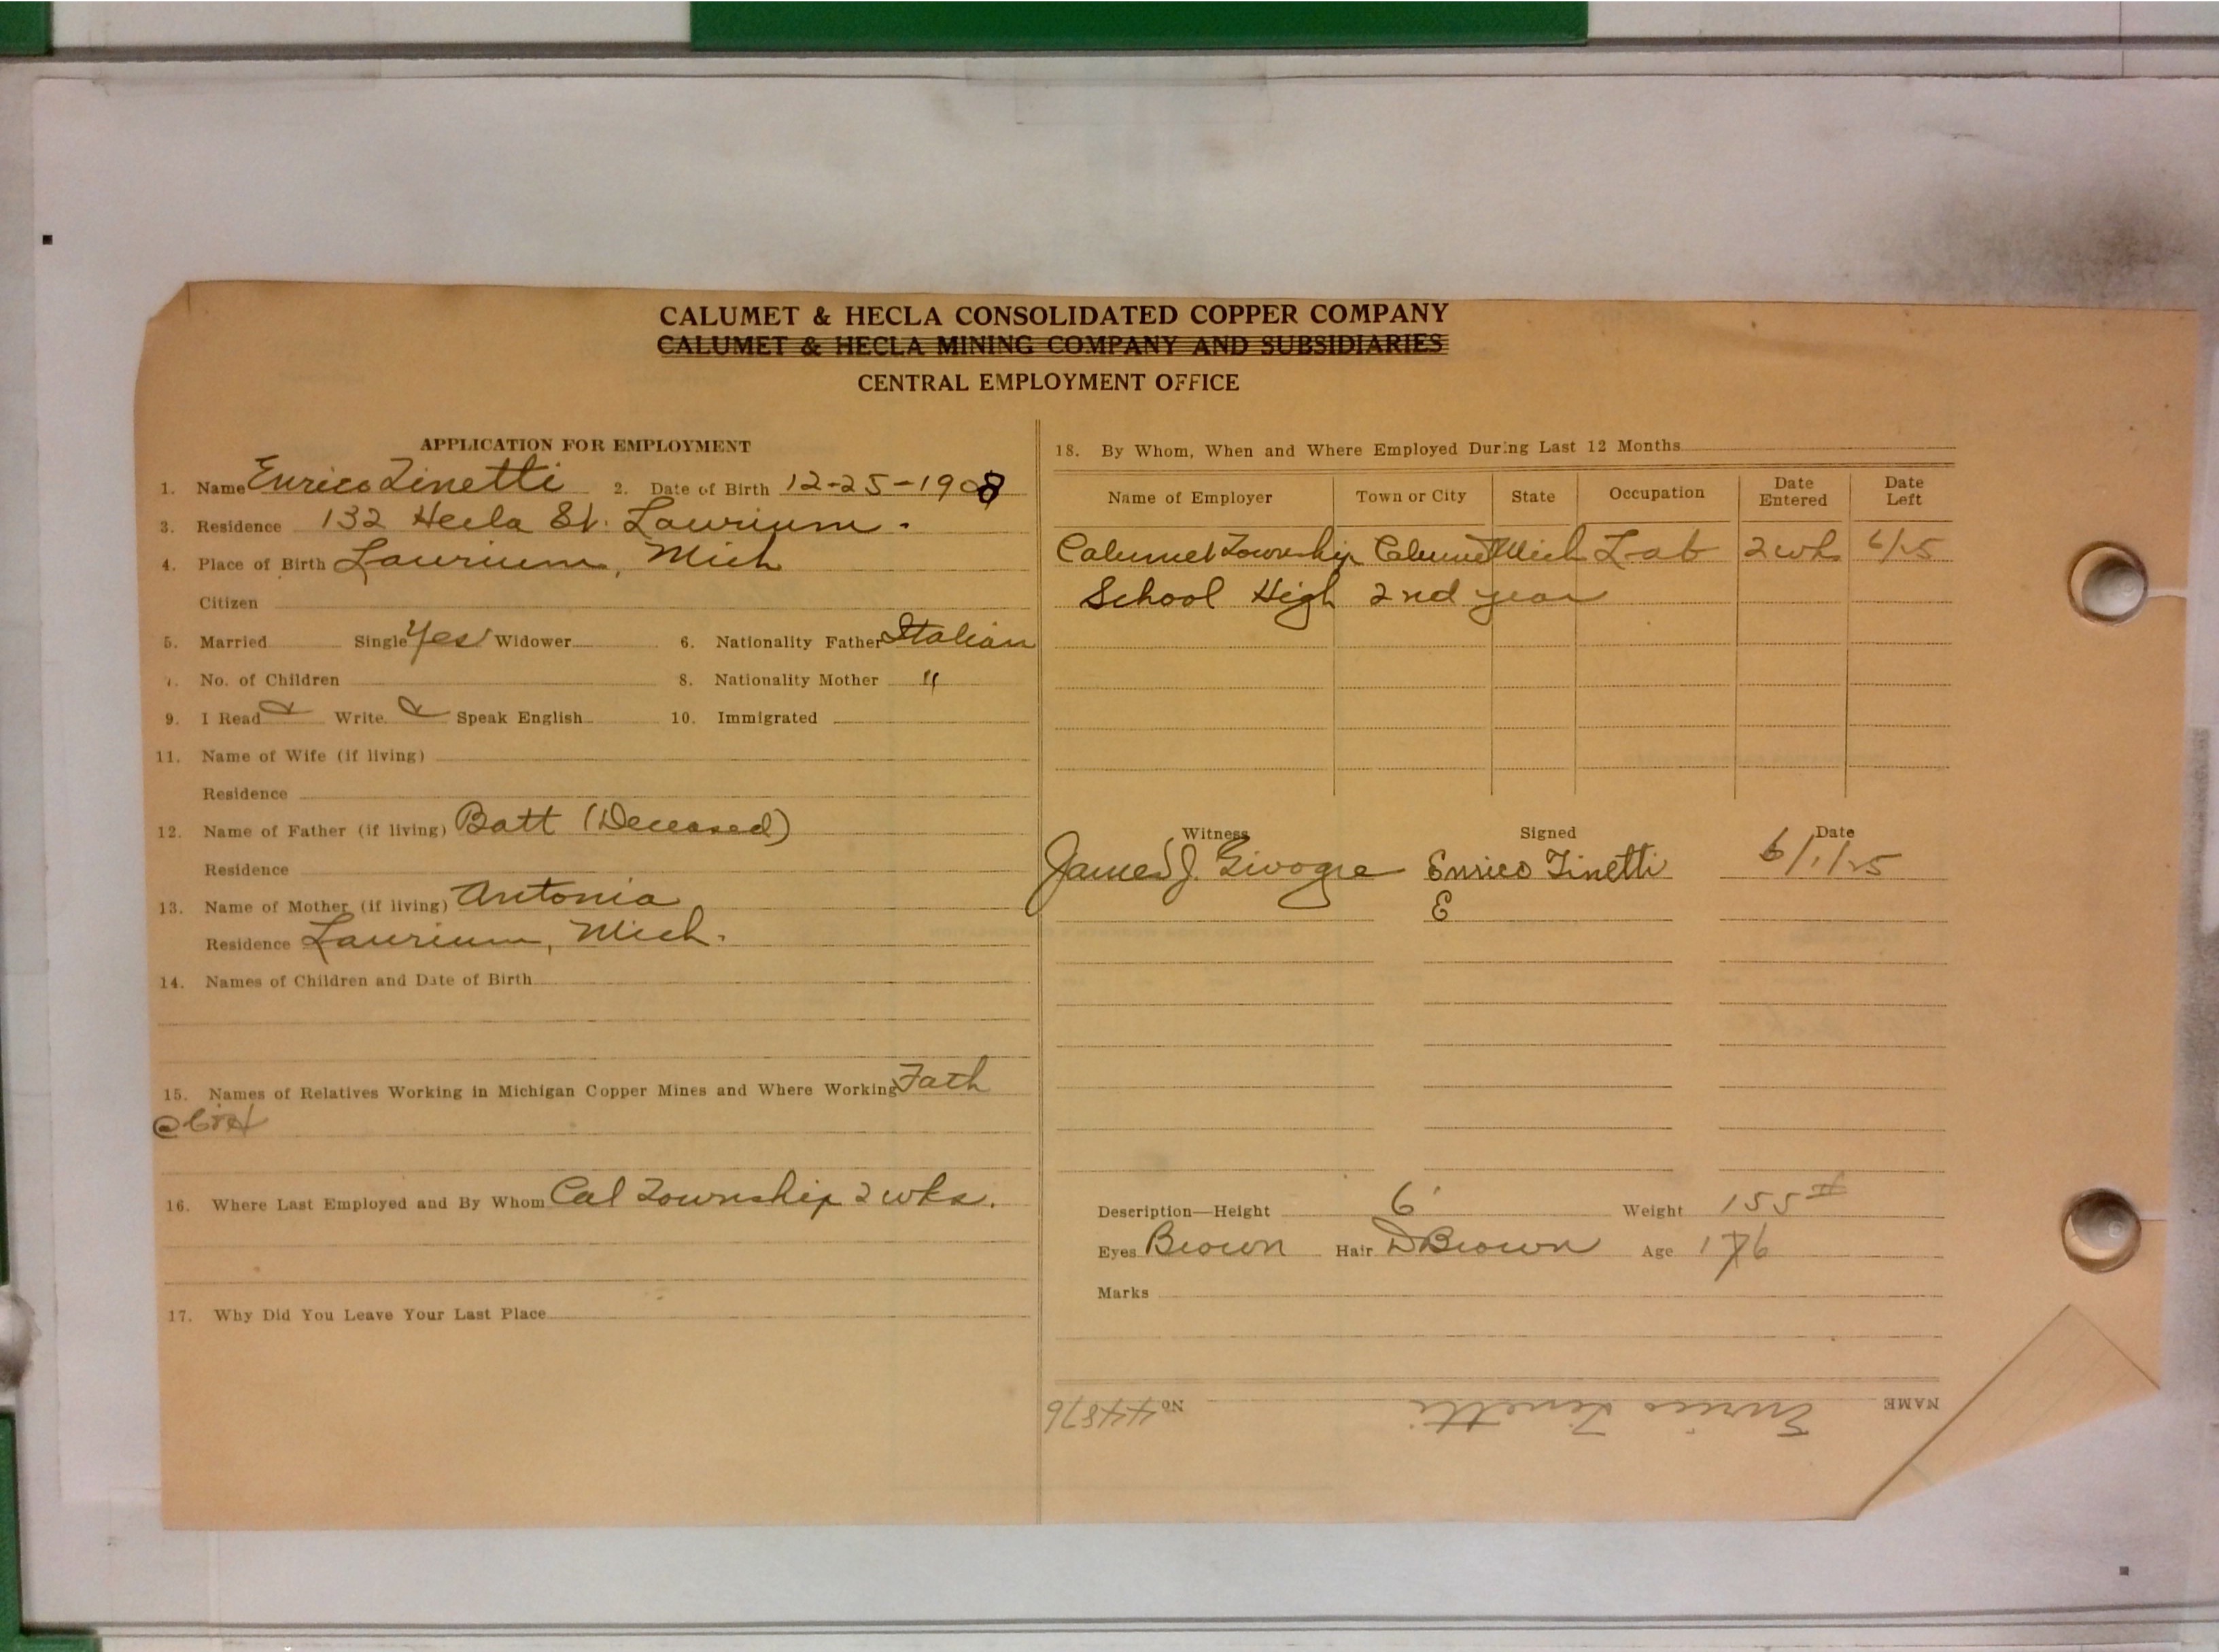 CALUMET & HECLA CONSOLIDATED COPPER COMPANY
CALUMET & HECLA MINING COMPANY AND SUBSIDIARIES
CENTRAL EMPLOYMENT OFFICE
APPLICATION FOR EMPLOYMENT
1. Name Enrico Zinetti 2. Date of Birth 12-25-1908
3. Residence 132 Hecla St. Laurium.
4. Place of Birth Laurium, Mich
Citizen
5. Married Single Yes Widower 6. Nationality Father Italian
7. No. of Children 8. Nationality Mother "
9. I Read Write Speak English 10. Immigrated
11. Name of Wife (if living)
Residence
12. Name of Father (if living) Batt (Deceased)
Residence
13. Name of Mother (if living) Antonia
Residence Laurium, Mich.
14. Names of Children and Date of Birth
15. Names of Relatives Working in Michigan Copper Mines and Where Working Fath
16. Where Last Employed and By Whom Cal Township 2 wks.
17. Why Did You Leave Your Last Place
18. By Whom, When and Where Employed During Last 12 Months
Name of Employer Town or City State Occupation Date Entered Date Left
Calumet Township Calumet Mich Lab 2 wk 6/25
School High 2nd year
Witness Signed Date
James J. Enrico Zinetti 6/1/25
E
Description—Height 6' Weight 155 #
Eyes Brown Hair D Brown Age 16
Marks
NAME Enrico Zinetti No 44876